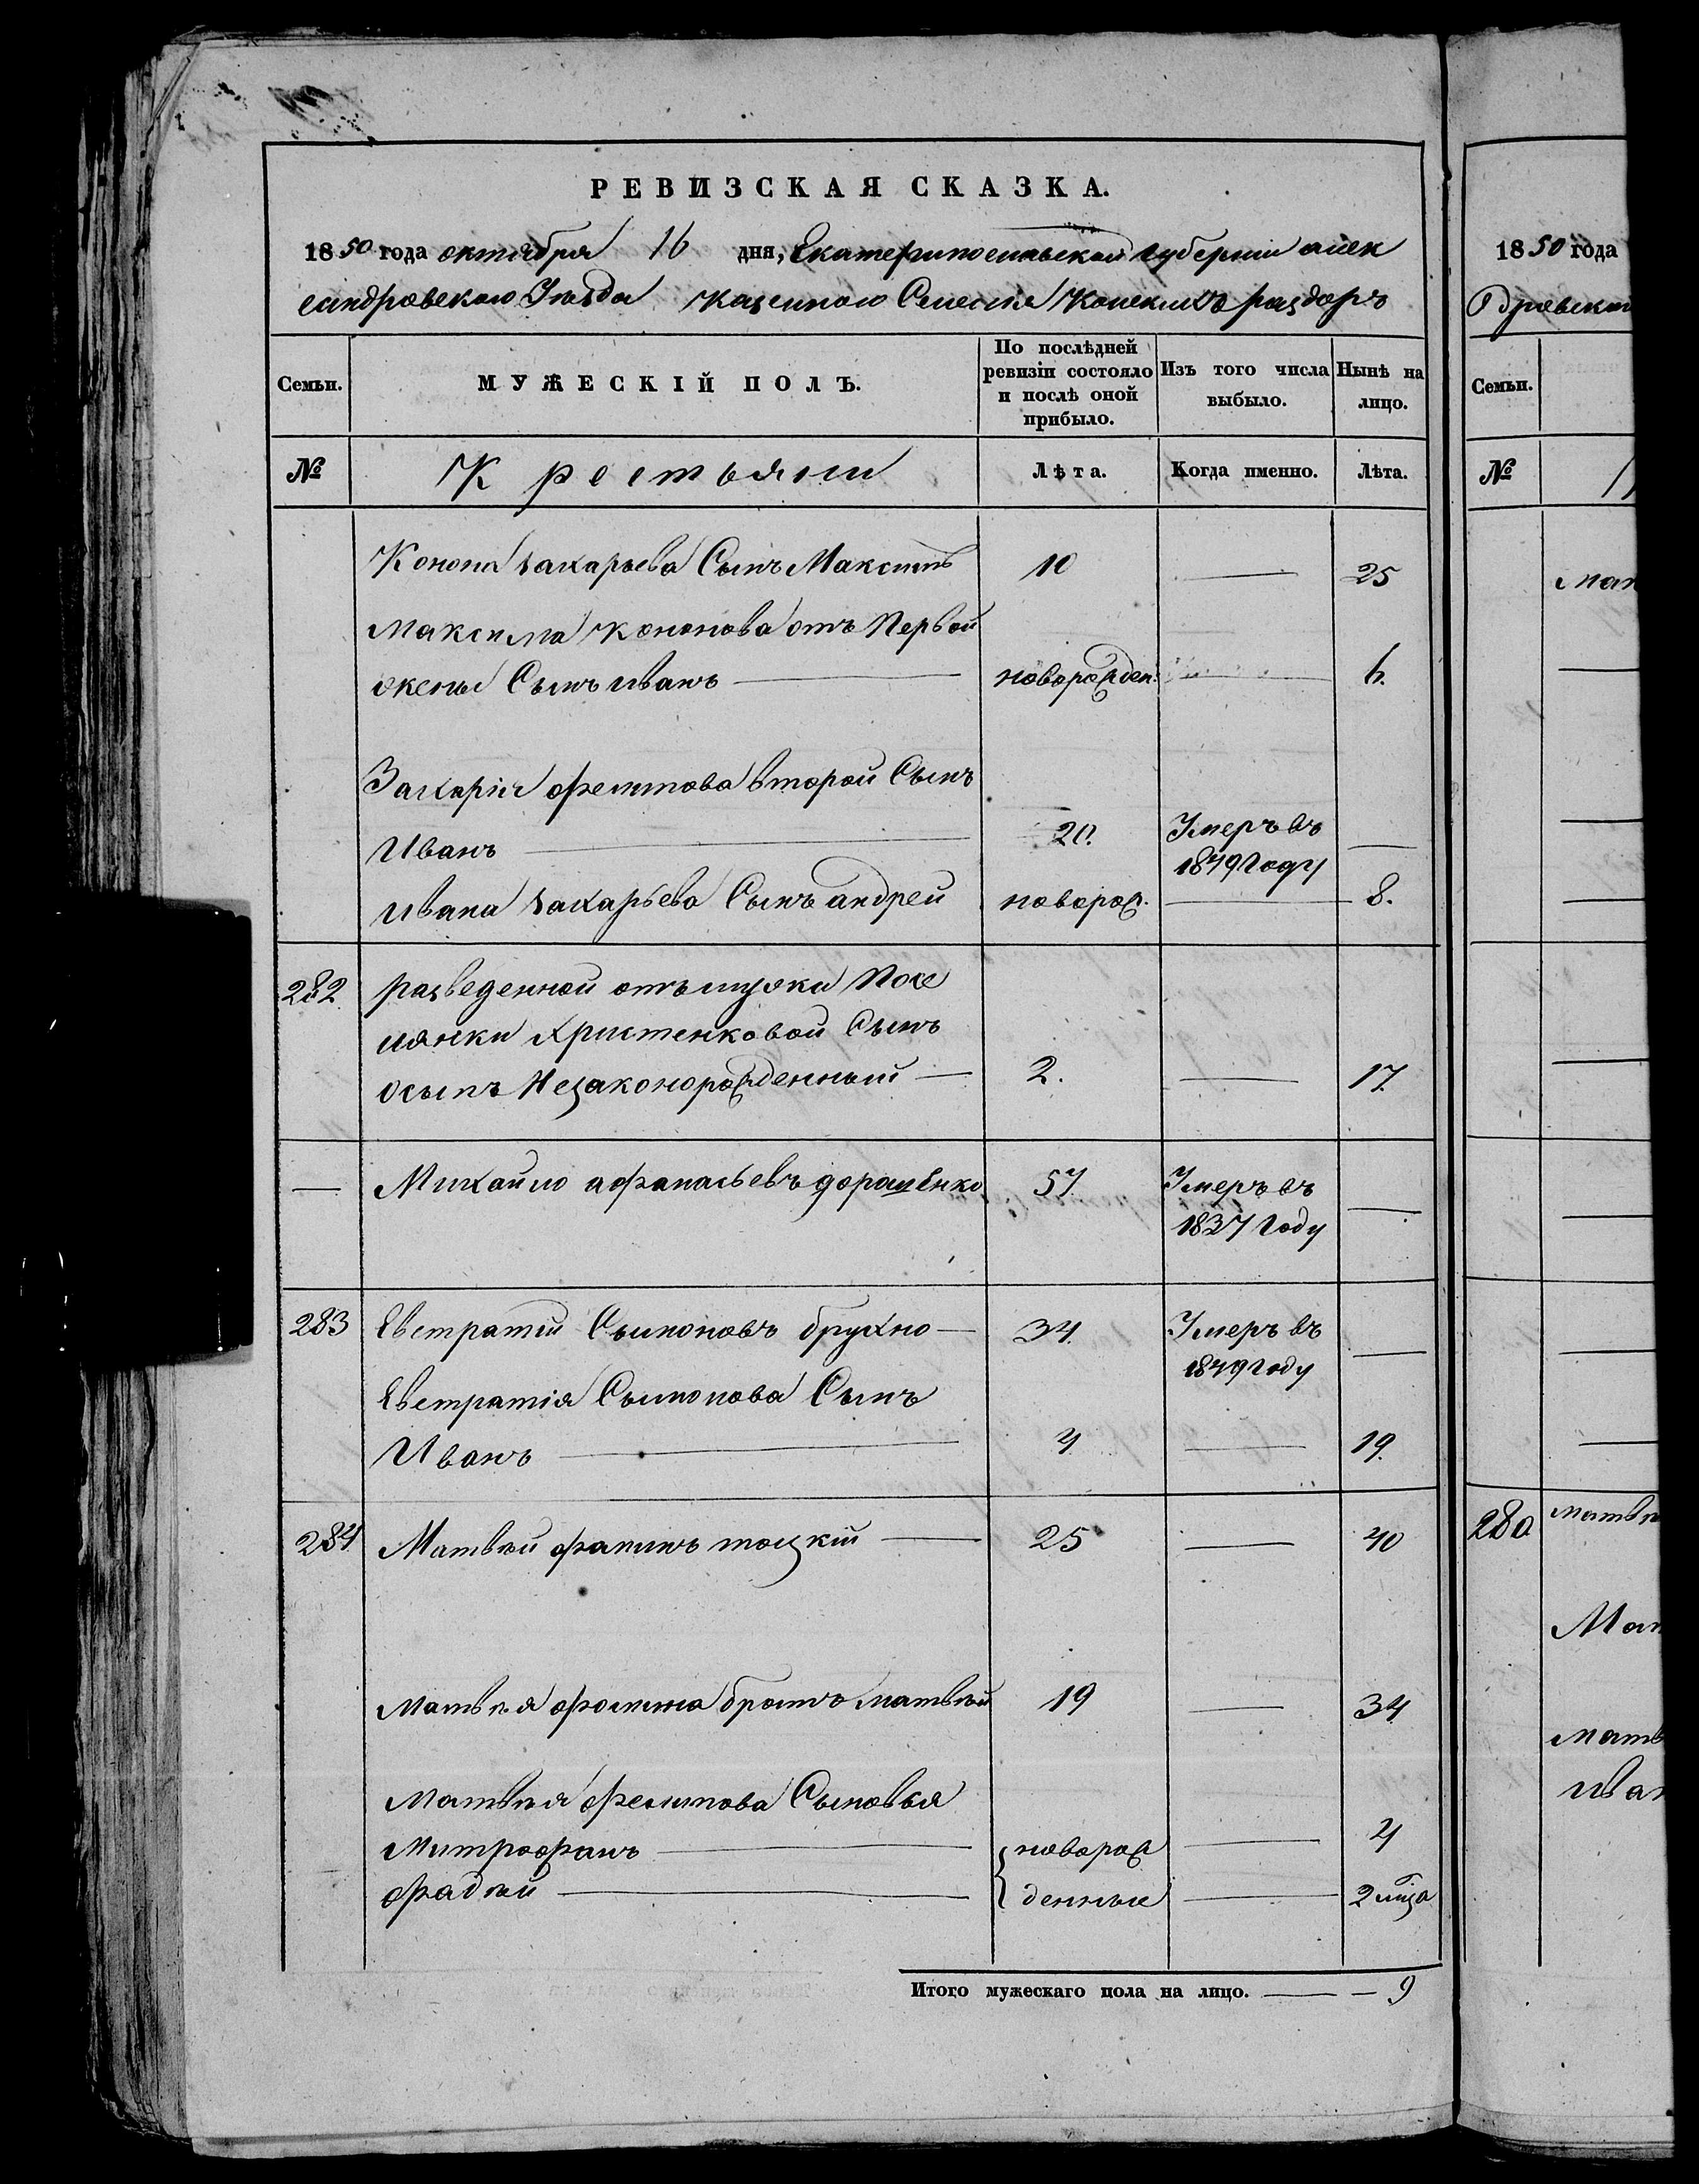 РЕВИЗСКАЯ СКАЗКА.
1850 года октября 16 дня, Екатеринославской губернии алек
сандровского Уезда казенного Селения Конских раздоръ
Семьи.
МУЖЕСКІЙ ПОЛЪ.
По послѣдней ревизіи состояло и послѣ оной прибыло.
Изъ того числа выбыло.
Нынѣ на лицо.
№
Крестьяни
Лѣта.
Когда именно.
Лѣта.
Конона захарьева Сынъ Максимъ 10 — 25
Максима Кононова отъ Первой
жены Сынъ иванъ — новорожден: — 6.
Захарія филипова второй Сынъ
Иванъ — 20. Умеръ въ 1849 Году —
ивана захарьева Сынъ андрей новорож. — 8.
282. разведенной отъ мужа Посе
лянки христенковой Сынъ
осыпъ Незаконорожденный — 2. — 17.
— Михайло афанасьевъ дорашенко 57 Умеръ въ 1837 Году —
283 Евстратій Сымоновъ брухно — 34. Умеръ въ 1849 Году —
Евстратія Сымонова Сынъ
Иванъ — 4 — 19.
284 Матвей фоминъ тоцкій — 25 — 40
матвея фомина братъ матвей 19 — 34
матвея Сыновья
Митрофанъ — новорож — 4
фадей — денные — 2
Итого мужескаго пола на лицо. — — 9
1850 года
дровског
Семьи.
№
280 матве
Мат
матв
Ива